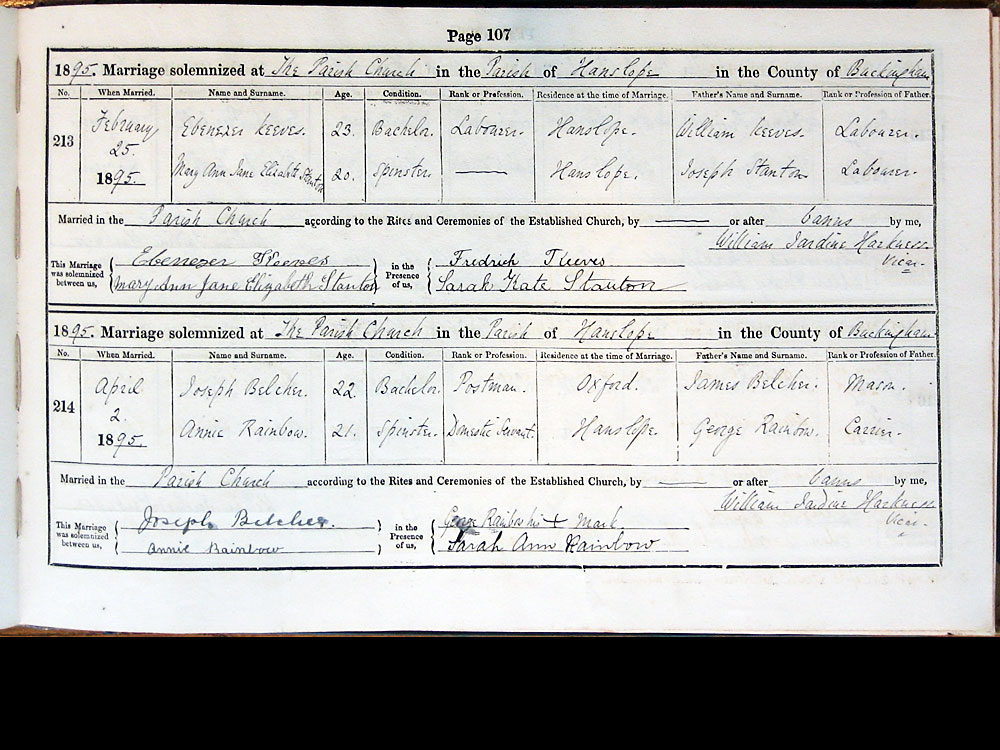 Page 107
1895. Marriage solemnized at The Parish Church in the Parish of Hanslope in the County of Buckingham
No. When Married. Name and Surname. Age. Condition. Rank or Profession. Residence at the time of Marriage. Father's Name and Surname. Rank or Profession of Father.
213 February 25. 1895. Ebenezer Keeves. 23. Bachelor. Labourer. Hanslope. William Keeves. Labourer.
Mary Ann Jane Elizabeth Stanton 20. Spinster. Hanslope. Joseph Stanton Labourer.
Married in the Parish Church according to the Rites and Ceremonies of the Established Church, by or after banns by me,
William Jardine Harkness.
Vicar.
This Marriage was solemnized between us, Ebenezer in the Presence of us, Fredrich
Mary Ann Jane Elizabeth Stanton Sarah Kate Stanton
1895. Marriage solemnized at The Parish Church in the Parish of Hanslope in the County of Buckingham
No. When Married. Name and Surname. Age. Condition. Rank or Profession. Residence at the time of Marriage. Father's Name and Surname. Rank or Profession of Father.
214 April 2. 1895. Joseph Belcher. 22. Bachelor. Postman. Oxford. James Belcher. Mason.
Annie Rainbow. 21. Spinster. Domestic Servant. Hanslope. George Rainbow. Carrier.
Married in the Parish Church according to the Rites and Ceremonies of the Established Church, by or after banns by me,
William Jardine Harkness
Vicar.
This Marriage was solemnized between us, Joseph Belcher. in the Presence of us, George Rainbow his + Mark.
Annie Rainbow Sarah Ann Rainbow